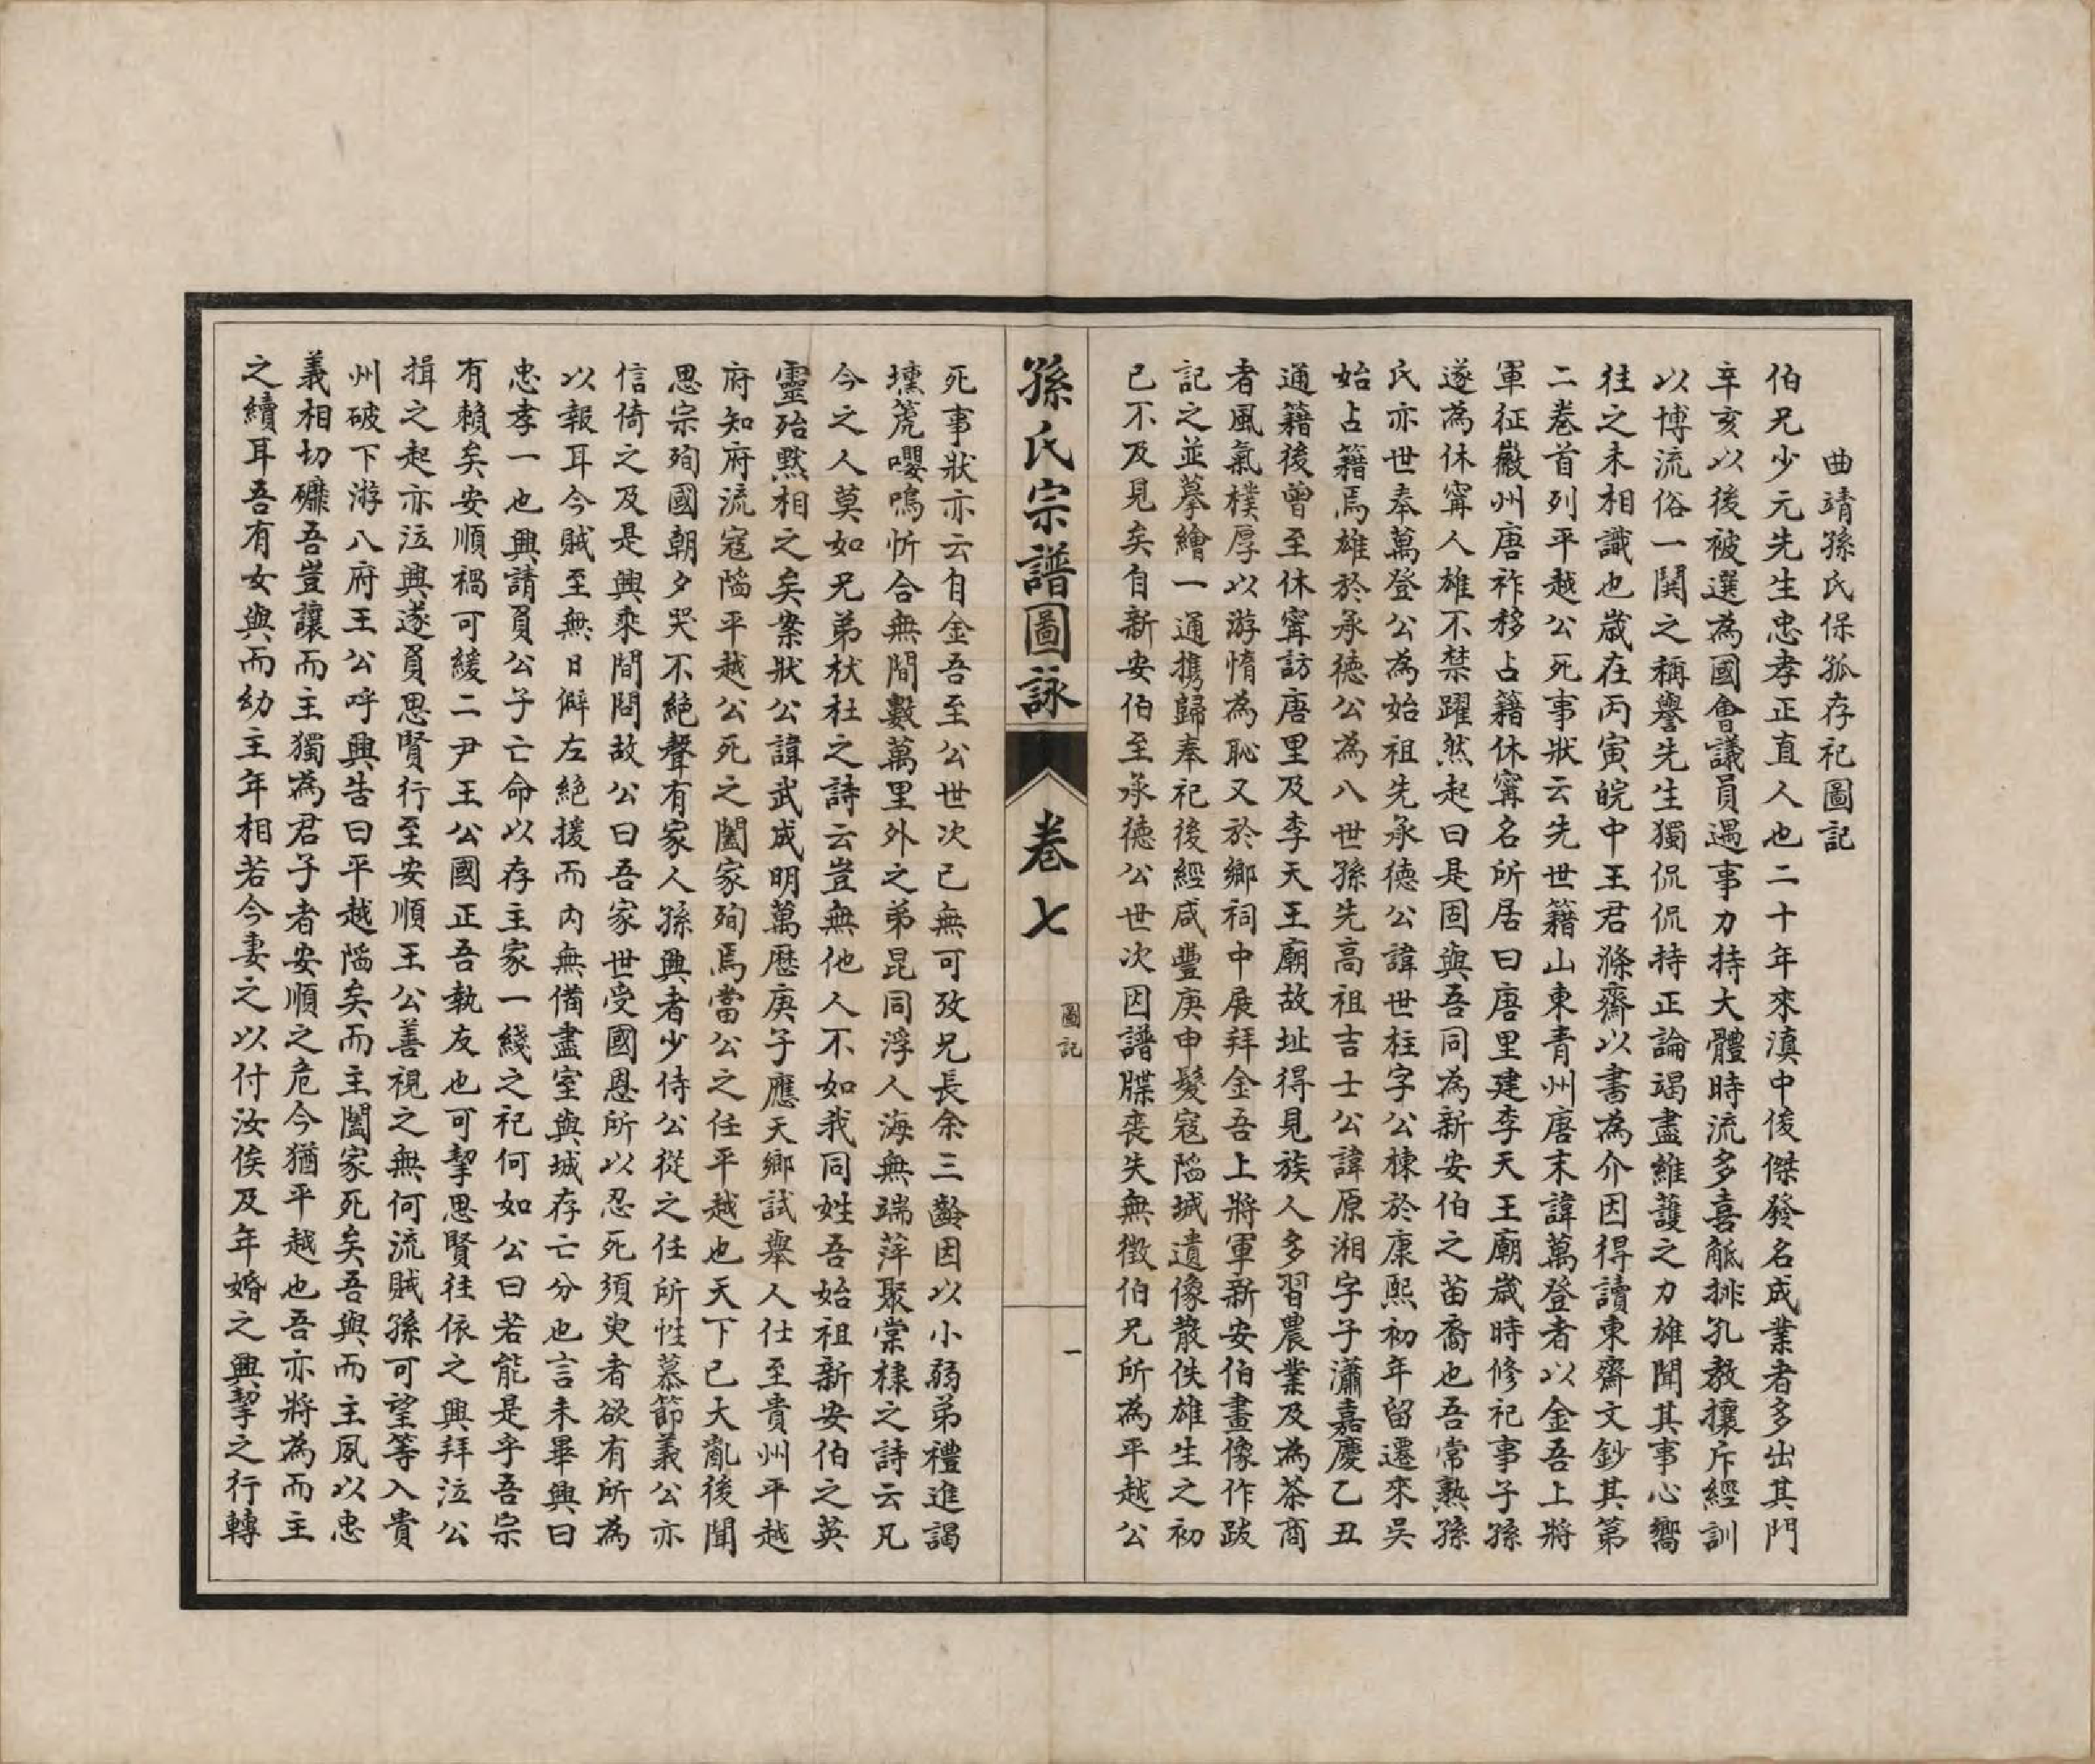 曲靖孫氏保孤存祀圖記
伯兄少元先生忠孝正直人也二十年來滇中俊傑發名成業者多出其門
辛亥以後被選為國會議員遇事力持大體時流多喜觝排孔教攘斥經訓
以博流俗一閧之稱譽先生獨侃侃持正論竭盡維護之力雄聞其事心嚮
往之未相識也歲在丙寅皖中王君滌齋以書為介因得讀東齋文鈔其第
二卷首列平越公死事狀云先世籍山東青州唐末諱萬登者以金吾上將
軍征徽州唐祚移占籍休寧名所居曰唐里建李天王廟歲時修祀事子孫
遂為休寧人雄不禁躍然起曰是固與吾同為新安伯之苗裔也吾常熟孫
氏亦世奉萬登公為始祖先承德公諱世柱字公棟於康熙初年留遷來吳
始占籍焉雄於承德公為八世孫先高祖吉士公諱原湘字子瀟嘉慶乙丑
通籍後曾至休寧訪唐里及李天王廟故址得見族人多習農業及為茶商
者風氣樸厚以游惰為恥又於鄉祠中展拜金吾上將軍新安伯畫像作跋
記之並摹繪一通攜歸奉祀後經咸豐庚申髮寇陷城遺像散佚雄生之初
已不及見矣自新安伯至承德公世次因譜牒喪失無徵伯兄所為平越公
孫氏宗譜圖詠
卷七
圖記
一
死事狀亦云自金吾至公世次已無可攷兄長余三齡因以小弱弟禮進謁
壎箎嚶鳴忻合無間數萬里外之弟昆同浮人海無端萍聚棠棣之詩云凡
今之人莫如兄弟杕杜之詩云豈無他人不如我同姓吾始祖新安伯之英
靈殆默相之矣案狀公諱武成明萬歷庚子應天鄉試舉人仕至貴州平越
府知府流寇陷平越公死之闔家殉焉當公之任平越也天下已大亂後聞
思宗殉國朝夕哭不絕聲有家人孫興者少侍公從之任所性慕節義公亦
信倚之及是興乘間問故公曰吾家世受國恩所以忍死須臾者欲有所為
以報耳今賊至無日僻左絕援而內無備盡室與城存亡分也言未畢興曰
忠孝一也興請負公子亡命以存主家一綫之祀何如公曰若能是乎吾宗
有賴矣安順禍可緩二尹王公國正吾執友也可挈思賢往依之興拜泣公
揖之起亦泣興遂負思賢行至安順王公善視之無何流賊孫可望等入貴
州破下游八府王公呼興告曰平越陷矣而主闔家死矣吾與而主夙以忠
義相切礪吾豈讓而主獨為君子者安順之危今猶平越也吾亦將為而主
之續耳吾有女與而幼主年相若今妻之以付汝俟及年婚之興挈之行轉